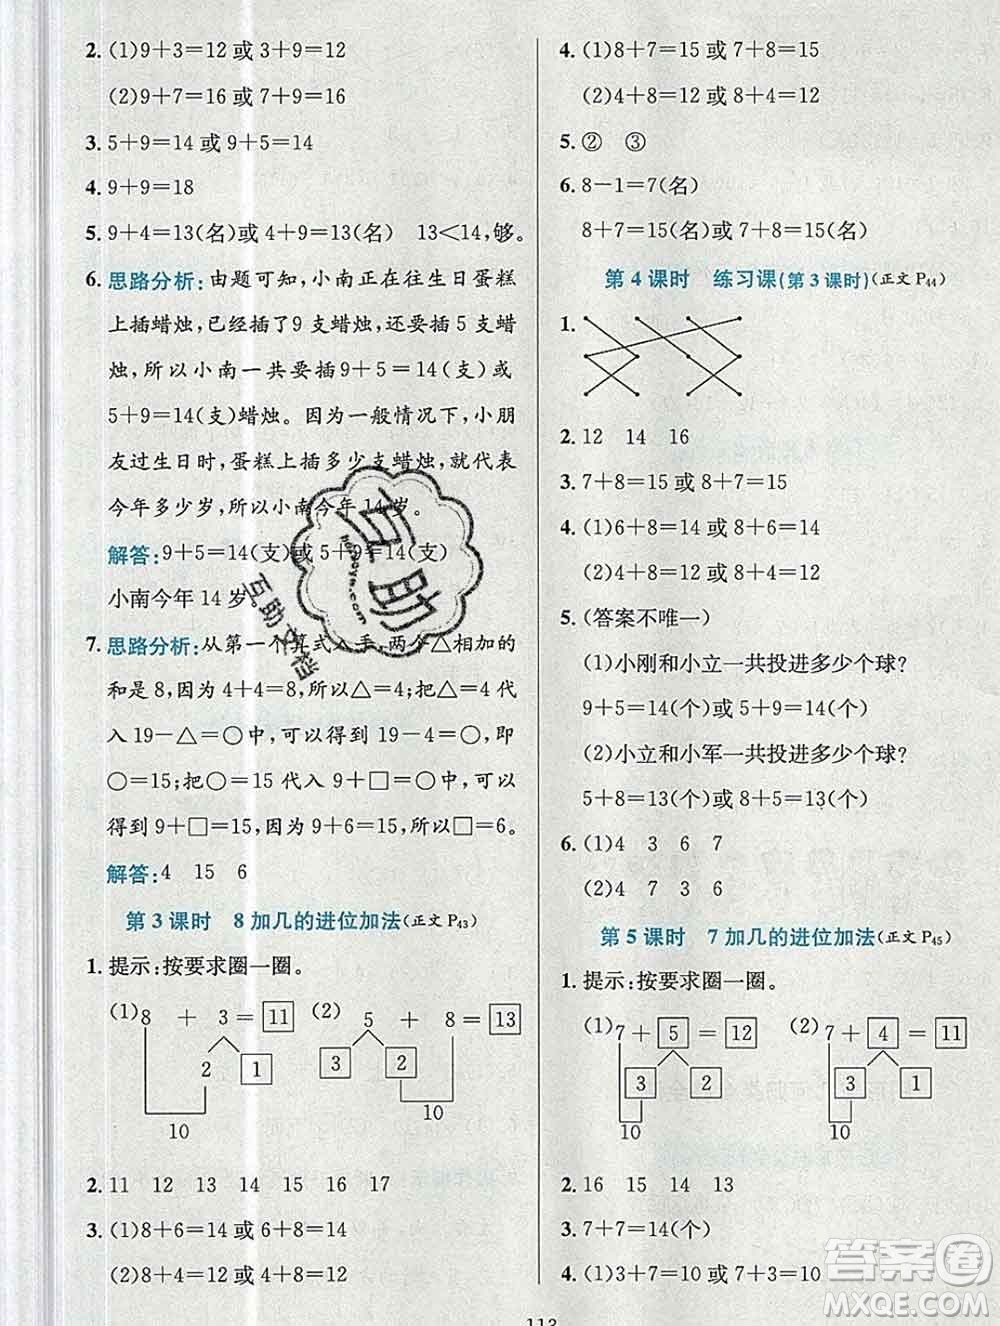 2. (1)9+3=12 或 3+9=12
(2)9+7=16 或 7+9=16
3. 5+9=14 或 9+5=14
4. 9+9=18
5. 9+4=13(名)或 4+9=13(名) 13<14,够。
6. 思路分析:由题可知,小南正在往生日蛋糕
上插蜡烛,已经插了 9 支蜡烛,还要插 5 支蜡
烛,所以小南一共要插 9+5=14(支)或
5+9=14(支)蜡烛。因为一般情况下,小朋
友过生日时,蛋糕上插多少支蜡烛,就代表
今年多少岁,所以小南今年 14 岁。
解答:9+5=14(支)或 5+9=14(支)
小南今年 14 岁。
7. 思路分析:从第一个算式入手,两个△相加的
和是 8,因为 4+4=8,所以△=4;把△=4 代
入 19-△=○中,可以得到 19-4=○,即
○=15;把○=15 代入 9+□=○中,可以
得到 9+□=15,因为 9+6=15,所以□=6。
解答:4 15 6
第 3 课时 8 加几的进位加法(正文 P43)
1. 提示:按要求圈一圈。
(1) 8 + 3 = 11 (2) 5 + 8 = 13
2 1 3 2
10 10
2. 11 12 13 14 15 16 17
3. (1)8+6=14 或 6+8=14
(2)8+4=12 或 4+8=12
4. (1)8+7=15 或 7+8=15
(2)4+8=12 或 8+4=12
5. ② ③
6. 8-1=7(名)
8+7=15(名)或 7+8=15(名)
第 4 课时 练习课(第 3 课时)(正文 P44)
1.
2. 12 14 16
3. 7+8=15 或 8+7=15
4. (1)6+8=14 或 8+6=14
(2)4+8=12 或 8+4=12
5. (答案不唯一)
(1)小刚和小立一共投进多少个球?
9+5=14(个)或 5+9=14(个)
(2)小立和小军一共投进多少个球?
5+8=13(个)或 8+5=13(个)
6. (1)4 3 6 7
(2)4 7 3 8
第 5 课时 7 加几的进位加法(正文 P45)
1. 提示:按要求圈一圈。
(1) 7 + 5 = 12 (2) 7 + 4 = 11
3 2 3 1
10 10
2. 16 15 14 13
3. 7+7=14(个)
4. (1)3+7=10 或 7+3=10
113
互助
互助文档
答案圈
MXQE.COM